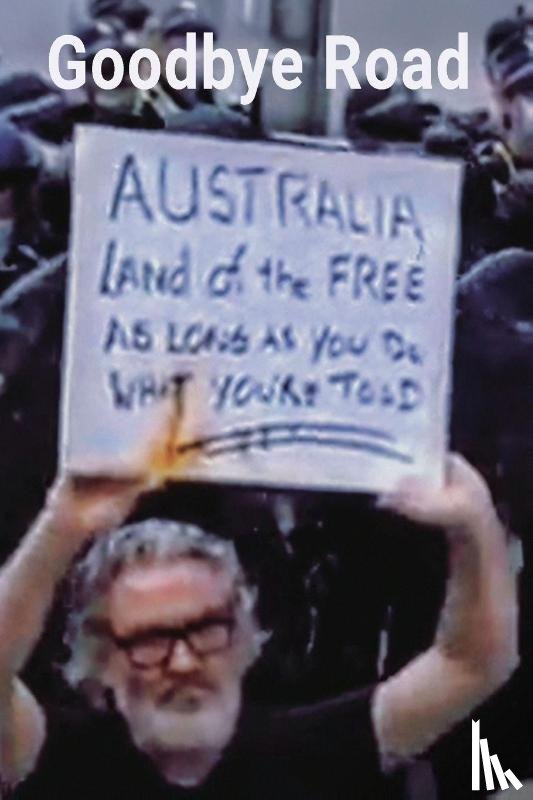 Goodbye Road
AUSTRALIA,
LAND of the FREE
AS LONG AS YOU DO
WHAT YOU'RE TOLD